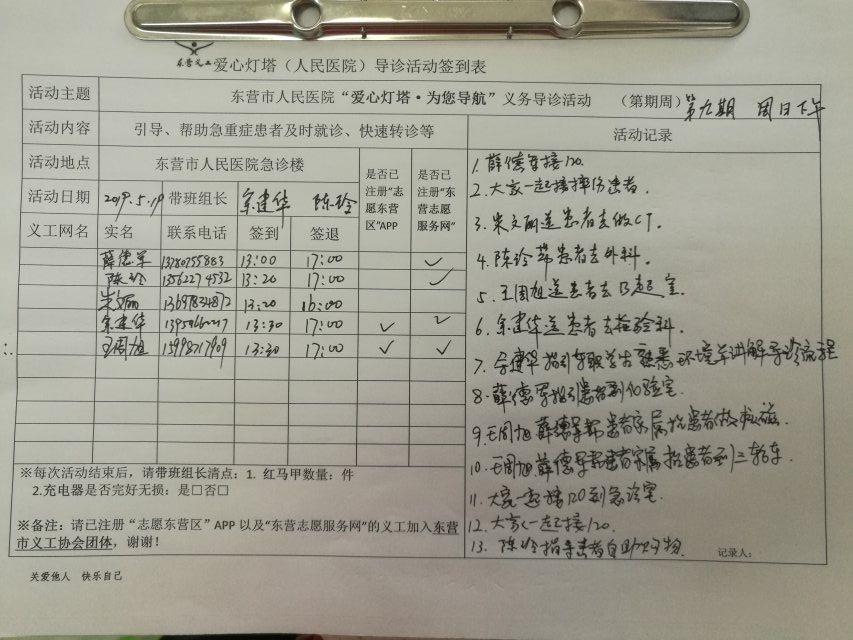 东营义工 爱心灯塔（人民医院）导诊活动签到表
活动主题 东营市人民医院“爱心灯塔·为您导航”义务导诊活动 （第期周） 第九期 周日下午
活动内容 引导、帮助急重症患者及时就诊、快速转诊等 活动记录
活动地点 东营市人民医院急诊楼 是否已注册“志愿东营区”APP 是否已注册“东营志愿服务网”
活动日期 2019.5.19 带班组长 余建华 陈玲
义工网名 实名 联系电话 签到 签退
薛德军 13780755883 13:00 17:00 ✓
陈玲 13562274532 13:20 17:00 ✓
朱文丽 13697834872 13:20 16:00
余建华 13:30 17:00 ✓ ✓
王周旭 15998717909 13:30 17:00 ✓ ✓
※每次活动结束后，请带班组长清点：1. 红马甲数量： 件
2.充电器是否完好无损：是□否□
※备注：请已注册“志愿东营区”APP 以及“东营志愿服务网”的义工加入东营
市义工协会团体，谢谢！
1. 薛德军接120.
2. 大家一起接摔伤患者.
3. 朱文丽送患者去做CT.
4. 陈玲带患者去外科.
5. 王周旭送患者去B超室.
6. 余建华送患者去检验科.
7. 余建华指引 熟悉环境并讲解导诊流程
8. 薛德军指引患者到化验室.
9. 王周旭薛德军帮患者家属抬患者做核磁.
10. 王周旭薛德军帮患者家属抬患者到三轮车.
11. 大家一起接120到急诊室.
12. 大家一起接120.
13. 陈玲指导患者自助购物
记录人：
关爱他人 快乐自己